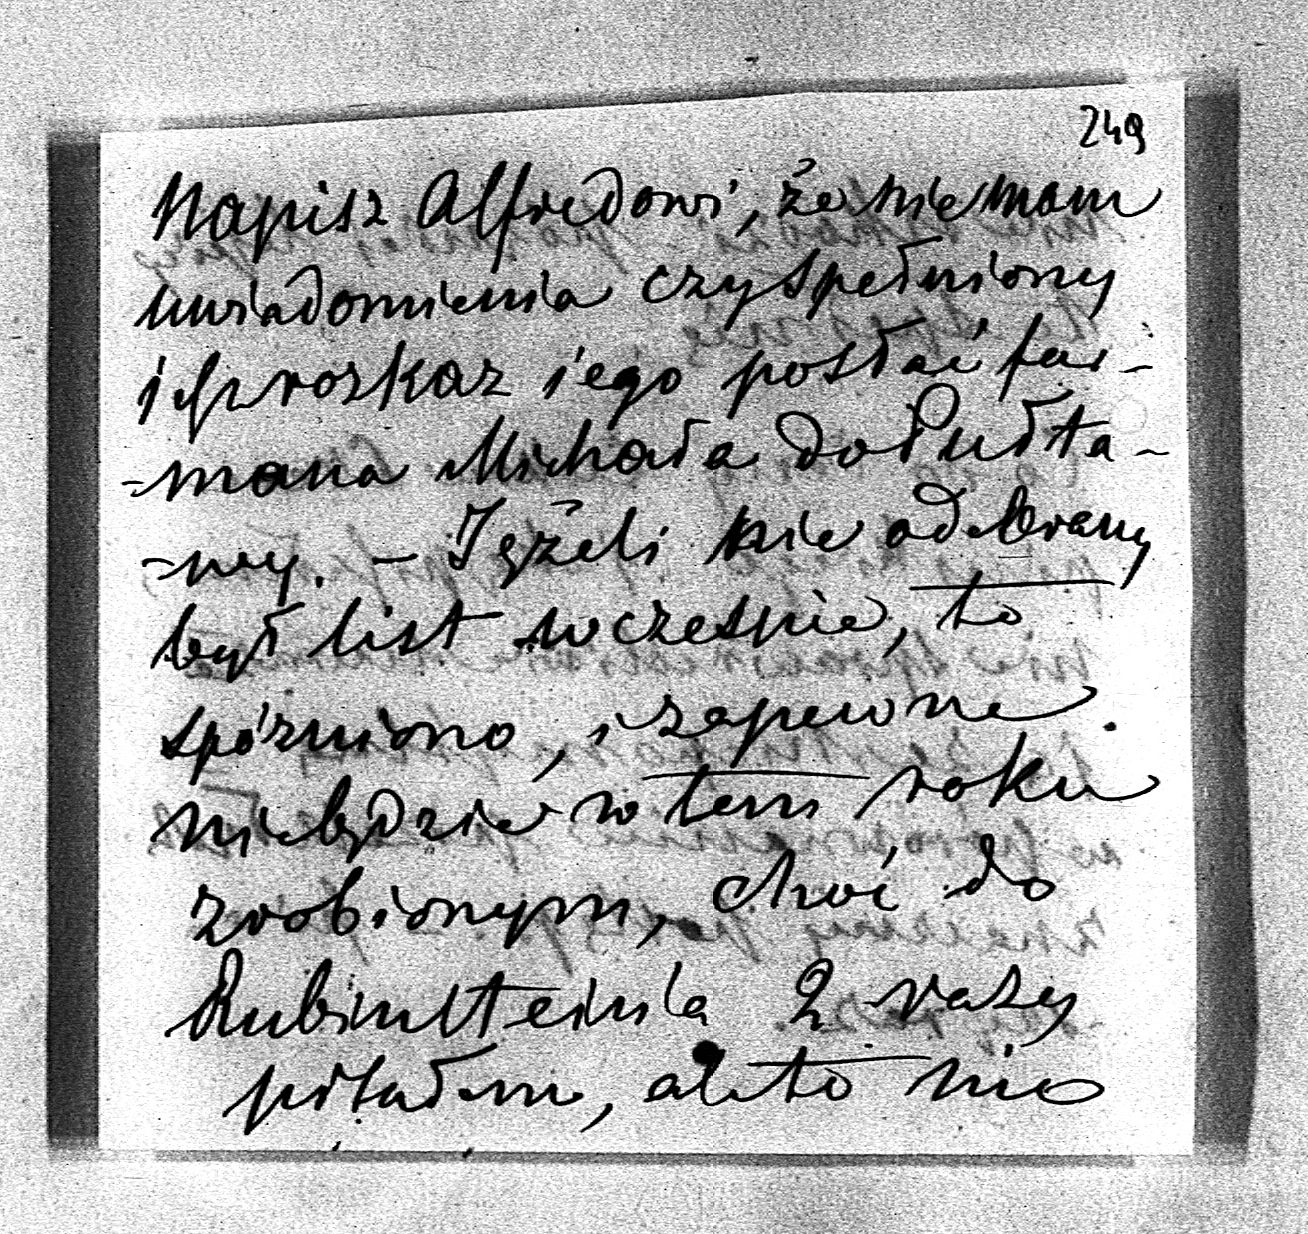 249
Napisz Alfredowi, że nie mam
uwiadomienia czy spełniony
jest rozkaz jego posłać fur-
-mana Michała do Pułta-
-wy. – Jeżeli nie odebrany
był list wcześnie, to
spóźniono, i zapewne
nie będzie w tem roku
zrobionym, choć do
Rubinsteina 2 razy
pisałem, ale to nic